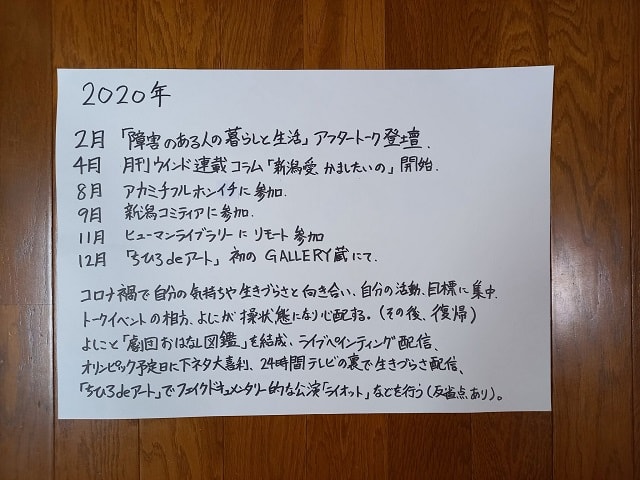 2020年
2月 「障害のある人の暮らしと生活」アフタートーク登壇.
4月 月刊ウインド連載コラム「新潟愛、かましたいの」開始.
8月 アカミチフルホンイチに参加.
9月 新潟コミティアに参加.
11月 ヒューマンライブラリーにリモート参加
12月 「ちひろdeアート」初のGALLERY蔵にて.
コロナ禍で自分の気持ちや生きづらさと向き合い、自分の活動、目標に集中.
トークイベントの相方、よしこが躁状態になり心配する。(その後、復帰)
よしこと「劇団おはなし図鑑」を結成、ライブペインティング配信、
オリンピック予定日に下ネタ大喜利、24時間テレビの裏で生きづらさ配信、
「ちひろdeアート」でフェイクドキュメンタリー的な公演「ライオット」などを行う(反省点あり)。